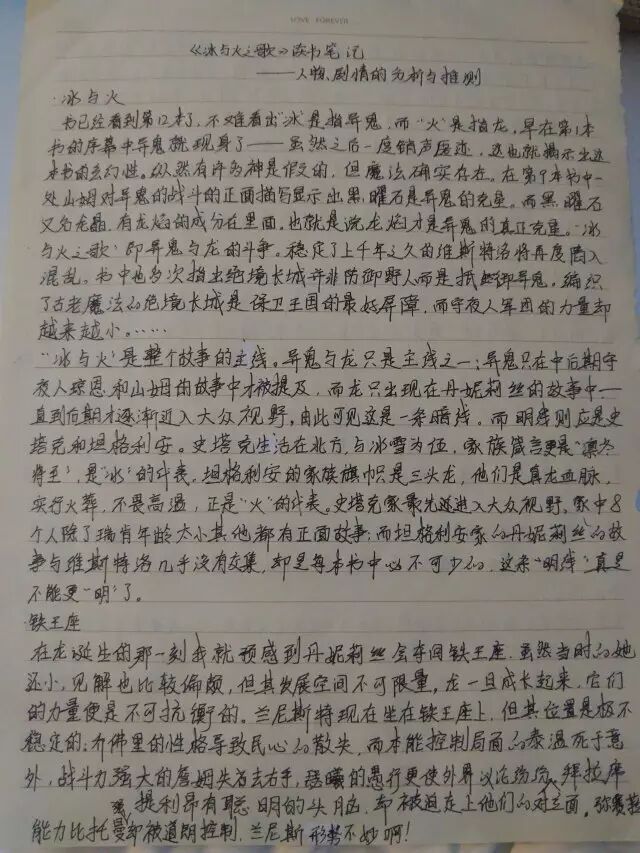 LOVE FOREVER
《冰与火之歌》读书笔记
——人物、剧情的分析与推测
·冰与火
书已经看到第12本了，不难看出"冰"是指异鬼，而"火"是指龙，早在第1本
书的序幕中异鬼就现身了——虽然之后一度销声匿迹，这也就揭示出这
本书的玄幻性。纵然有许多神是作文的，但魔法确实存在。在第9本书中一
处山姆对异鬼的战斗的正面描写显示出黑曜石是异鬼的克星。而黑曜石
又名龙晶，有龙焰的成分在里面。也就是说龙焰才是异鬼的真正克星。"冰
与火之歌"即异鬼与龙的斗争。稳定了上千年之久的维斯特洛将再度陷入
混乱。书中也多次指出绝境长城并非防御野人而是抵御异鬼。编织
了古老魔法的绝境长城是保卫王国的最好屏障，而守夜人军团的力量却
越来越小。……
"冰与火"是整个故事的主线。异鬼与龙只是主线之一：异鬼只在中后期守
夜人琼恩和山姆的故事中才被提及，而龙只出现在丹妮莉丝的故事中一
直到后期才逐渐进入大众视野。由此可见这是一条暗线。而明线则应是史
塔克和坦格利安。史塔克生活在北方，与冰雪为伍，家族箴言更是"凛冬
将至"，是"冰"的代表。坦格利安的家族旗帜是三头龙，他们是真龙血脉，
实行火葬，不畏高温，正是"火"的代表。史塔克家最先进入大众视野，家中8
个人除了瑞肯年龄太小其他都有正面故事；而坦格利安家的丹妮莉丝的故
事与维斯特洛几乎没有交集，却是每本书中必不可少的，这条"明线"真是
不能更"明"了。
·铁王座
在龙诞生的那一刻我就预感到丹妮莉丝会夺回铁王座。虽然当时的她
还小，见解也比较偏颇，但其发展空间不可限量。龙一旦成长起来，它们
的力量便是不可抗衡的。兰尼斯特现在坐在铁王座上，但其位置是极不
稳定的：乔佛里的性格导致民心的散失，而本能控制局面的泰温死于意
外，战斗力强大的詹姆失右去右手，瑟曦的愚行更使外界议论纷纷，拜拉席
提利昂有聪明的头脑，却被迫走上他们的对立面。弥赛菈
能力比托曼却被道朗控制，兰尼斯形势不妙啊！